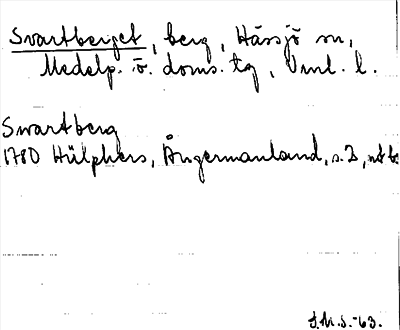 Svartberget, berg, Hässjö sn,
Medelp. ö. doms. tg, Vnl. l.
Svartberg
1780 Hülphers, Ångermanland, s. 2, not b.
S.M.S.-63.